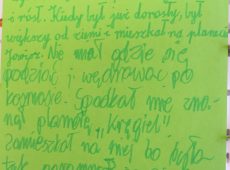 i rósł. Kiedy był już dorosły, był
większy od ziemi i mieszkał na planecie
Jowisz. Nie miał gdzie się
podziać i wędrował po
kosmosie. Spadkał
nał planetę „Kręgiel"
Zamieszkał na niej bo była
tak